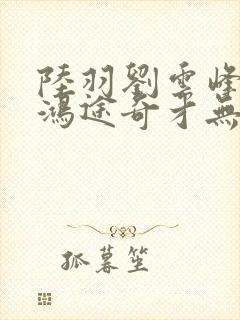 陸羽劉雲峰
鴻途奇才無
孤暮笙